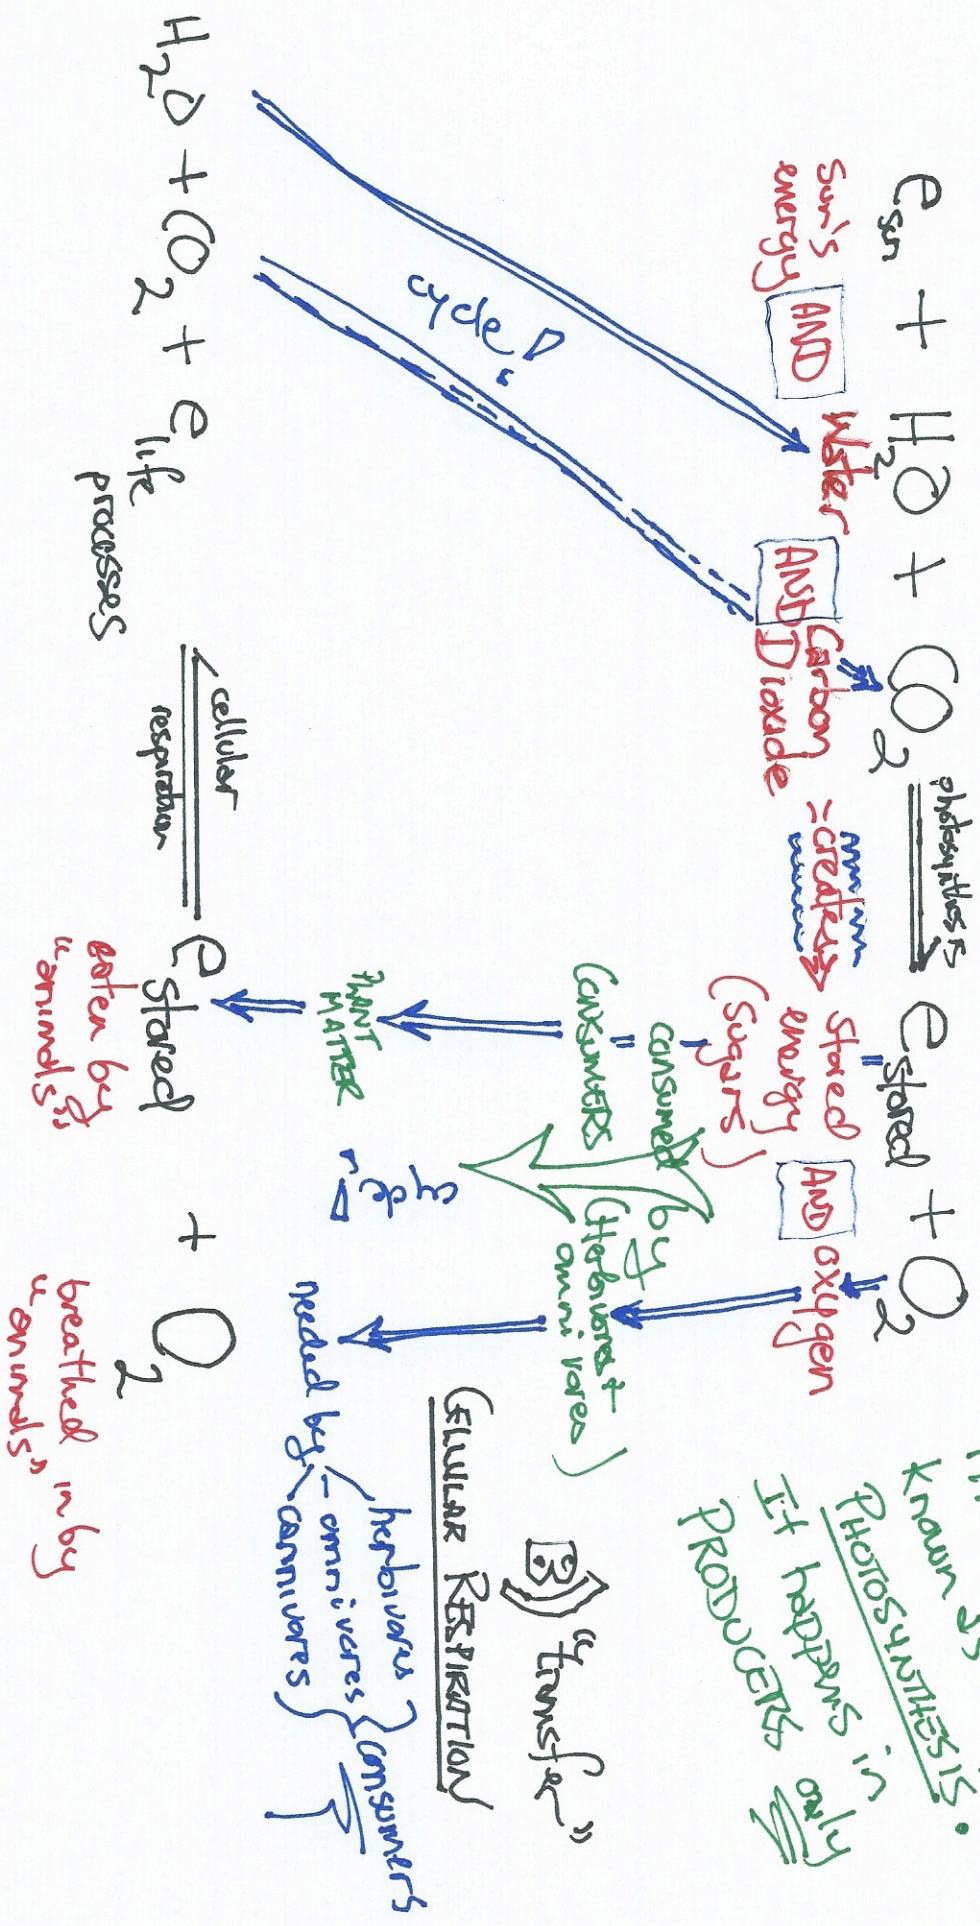 Known as
PHOTOSYNTHESIS.
It happens in
PRODUCERS only
e sun + H2O + CO2 photosynthesis e stored + O2
Sun's energy AND Water AND Carbon Dioxide = creates Stored energy (sugars) AND oxygen
consumed by
CONSUMERS (Herbivores + omnivores)
B "transfer"
CELLULAR RESPIRATION
cycle!
PLANT MATTER
cycle!
needed by herbivores
omnivores
carnivores
consumers
H2O + CO2 + e life processes cellular respiration e stored + O2
eaten by "animals"
breathed in by "animals"